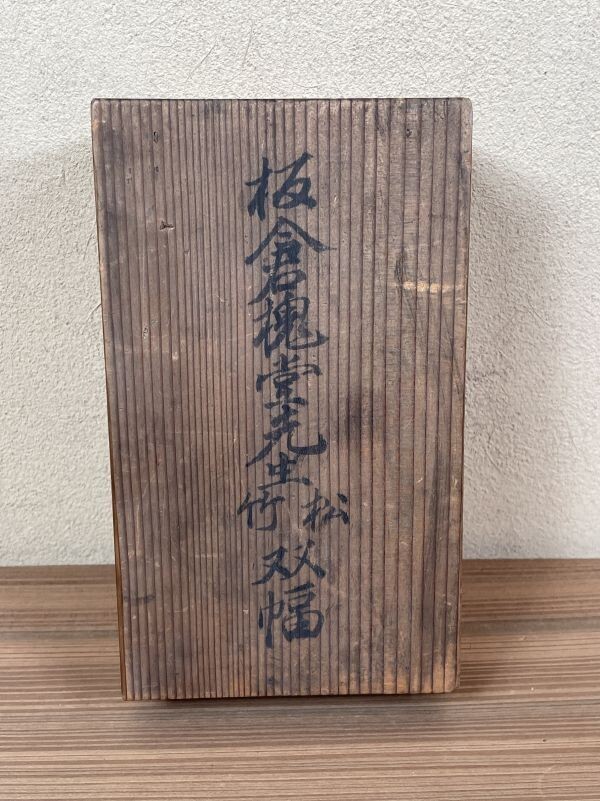 板倉槐堂先生
松
竹
双幅